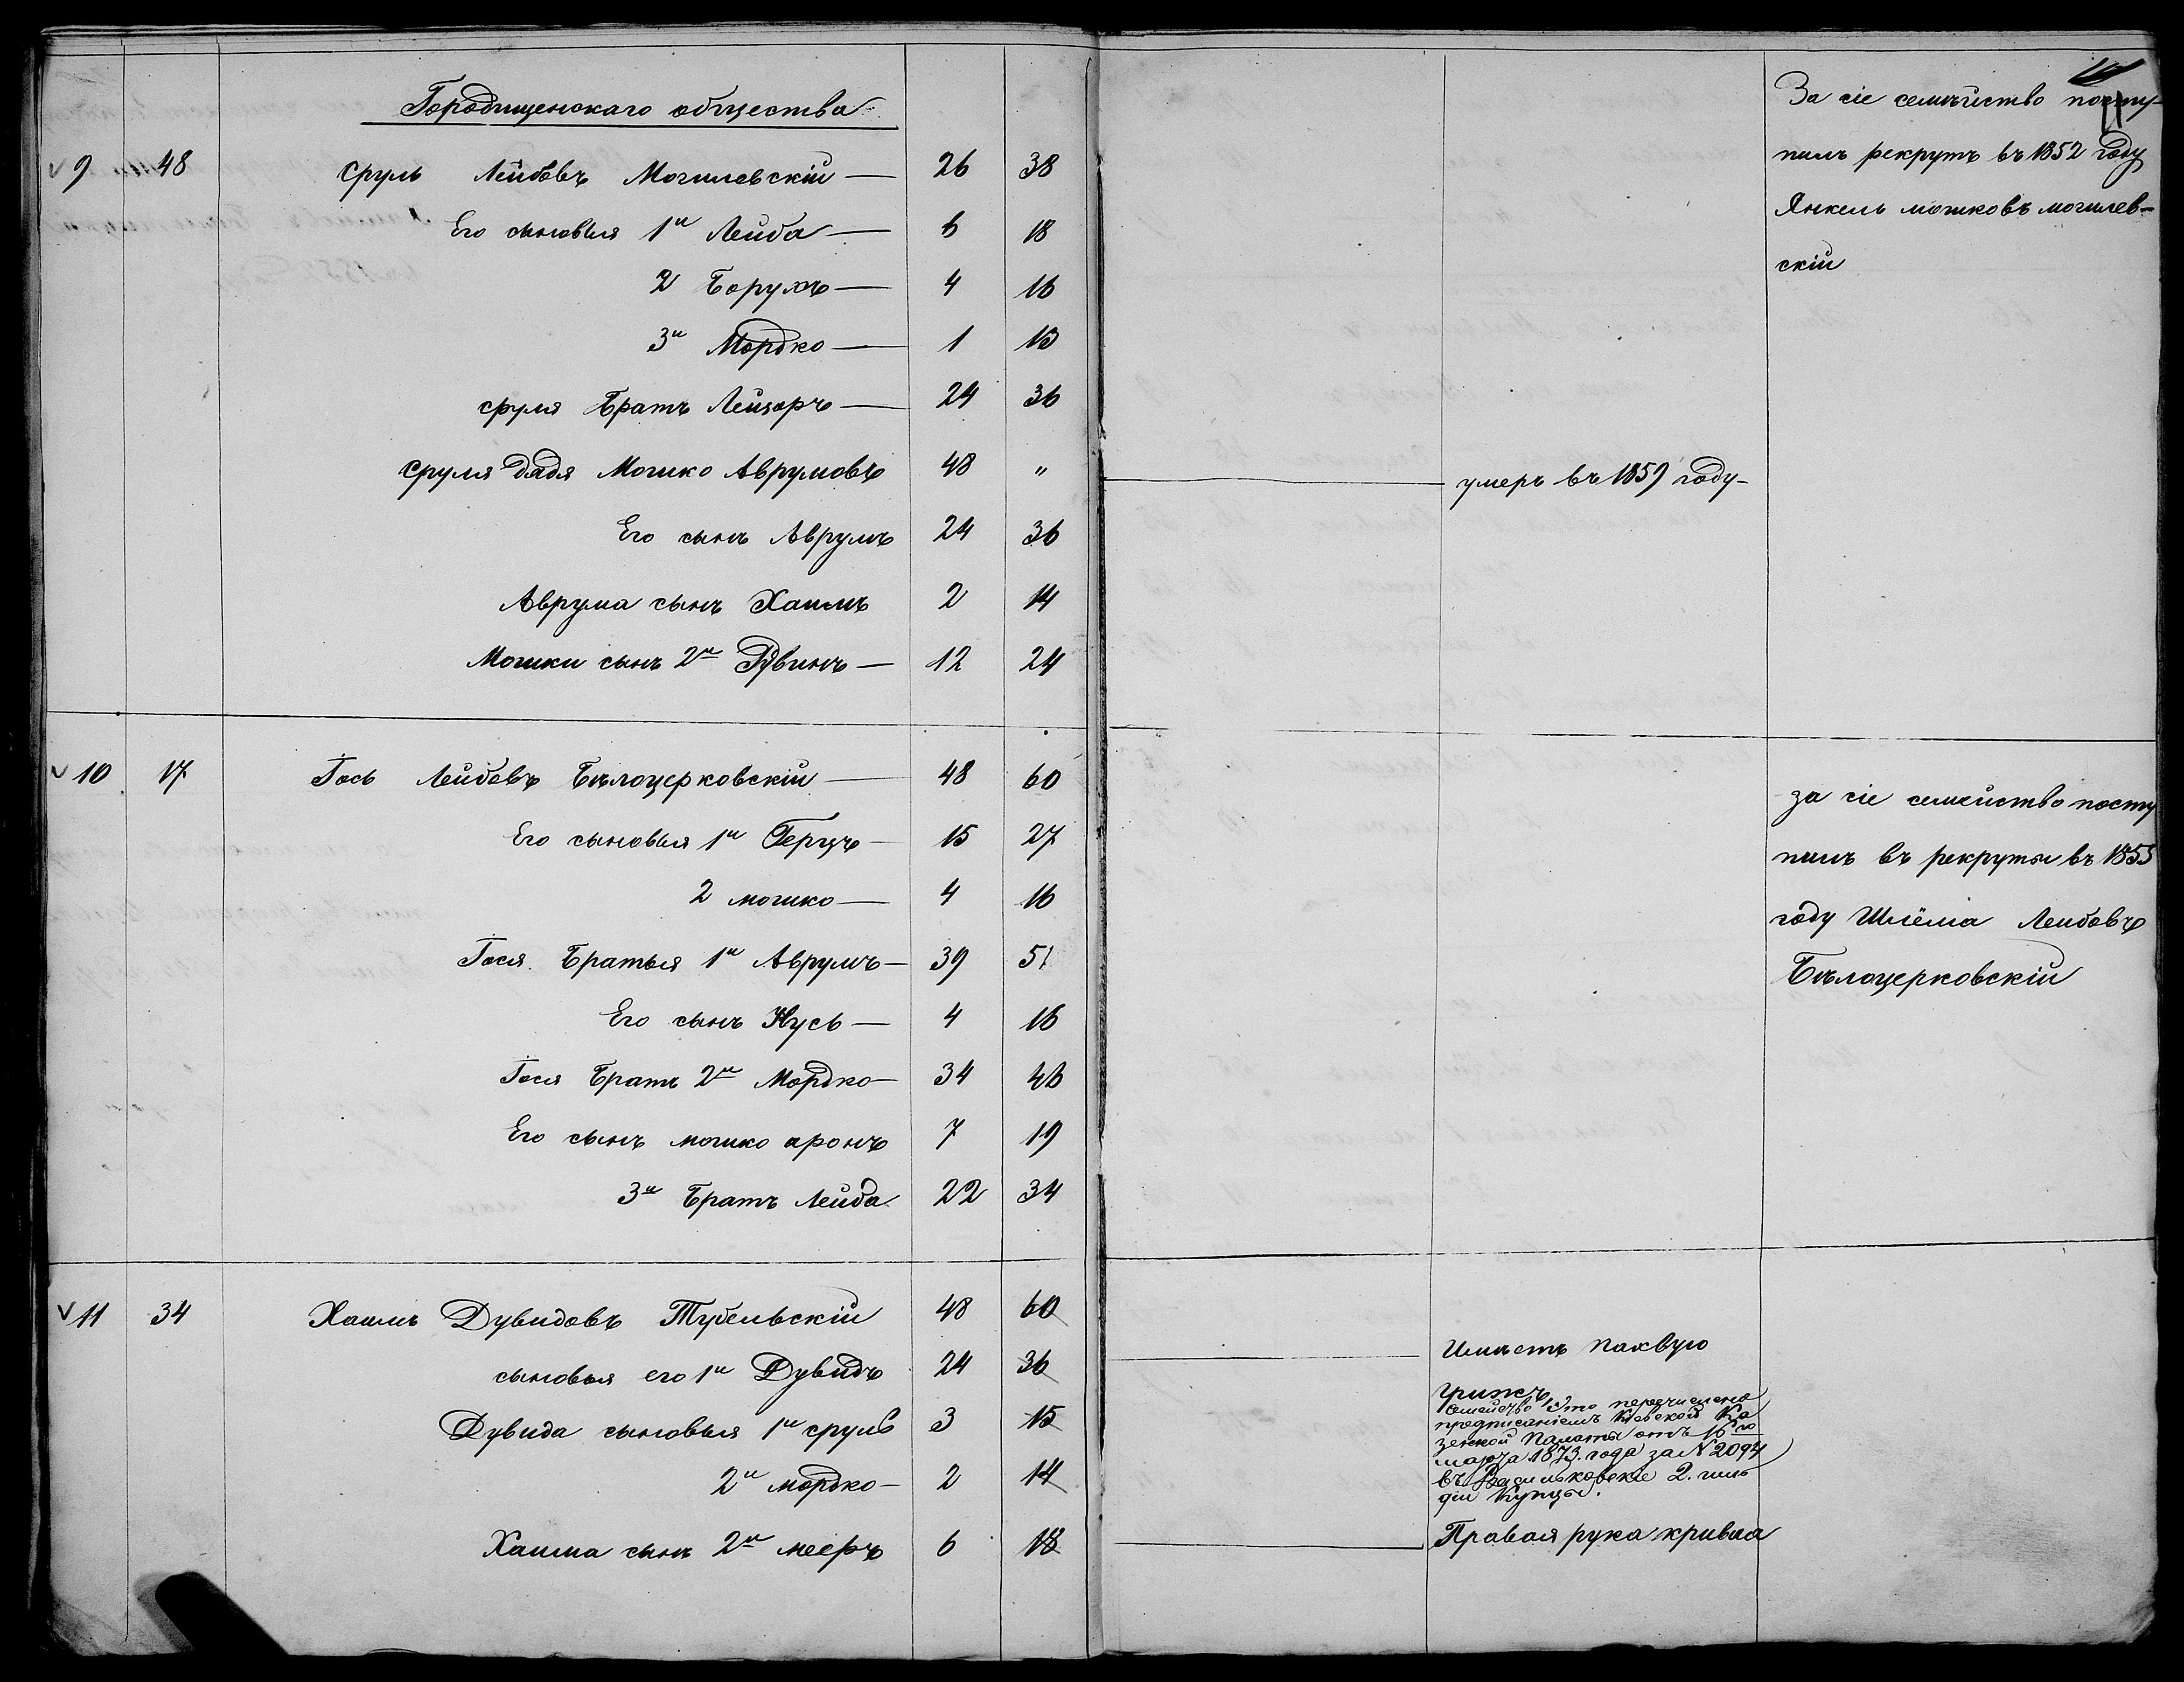 Городищенскаго общества
9 48 Сруль Лейбовъ Могилевскій — 26 38
Его сыновья 1й Лейба — 6 18
2 Борухъ — 4 16
3й Мордко — 1 13
Сруля Братъ Лейзоръ — 24 36
Сруля Дядя Мошко Аврумовъ 48 "
умеръ въ 1859 году
Его сынъ Аврумъ 24 36
Аврума сынъ Хаимъ 2 14
Мошки сынъ 2й — 12 24
За сіе семѣйство посту-
пилъ рекрутъ въ 1852 году
Янкель мошковъ могилев-
скій
10 17 Гось Лейбовъ Бѣлоцерковскій — 48 60
Его сыновья 1й Герцъ — 15 27
2 мошко — 4 16
Гося Братья 1й Аврумъ — 39 51
Его сынъ Нусь — 4 16
Гося Братъ 2й Мордко — 34 46
Его сынъ мошко аронъ 7 19
3й Братъ Лейба 22 34
за сіе семейство посту
пилъ въ рекруты въ 1855
году Шлёма Лейбовъ
Бѣлоцерковскій
11 34 Хаимъ Дувидовъ Тубельскій 48 60
сыновья его 1й Дувидъ 24 36
Дувида сыновья 1й сруль 3 15
2й мордко — 2 14
Хаима сынъ 2й мееръ 6 18
Имѣетъ паховую
грижъ
Семейство это перечислено
предписаніемъ Кіевской Ка
зенной Палаты отъ 16го
марта 1873 года за № 2094
въ Васильковскіе 2. гиль
діи Купцы.
Правая рука кривая